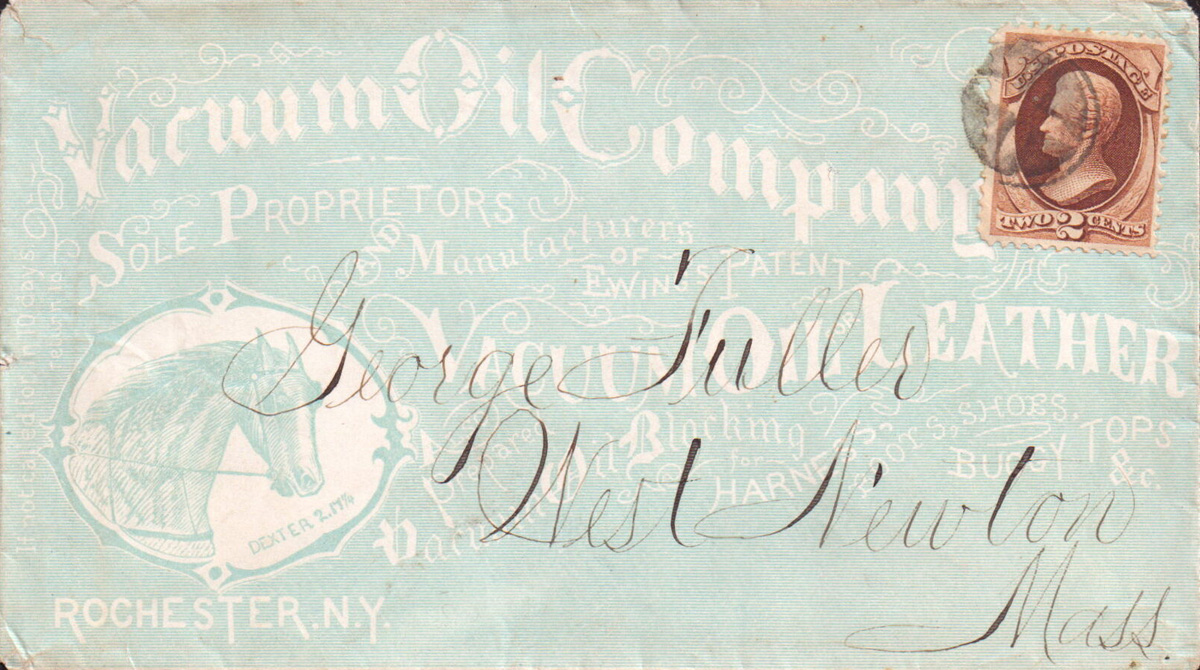 Vacuum Oil Company
Sole Proprietors
AND
Manufacturers
OF
Ewing's Patent
Vacuum Oil FOR Leather
Prepared
Vacuum Oil Blacking
for
Harness, Boots, Shoes,
Buggy Tops
&c.
DEXTER 2.17¼
ROCHESTER. N.Y.
If not called for in 10 days,
return to
U.S. POSTAGE
TWO 2 CENTS
George Fuller
West Newton
Mass.